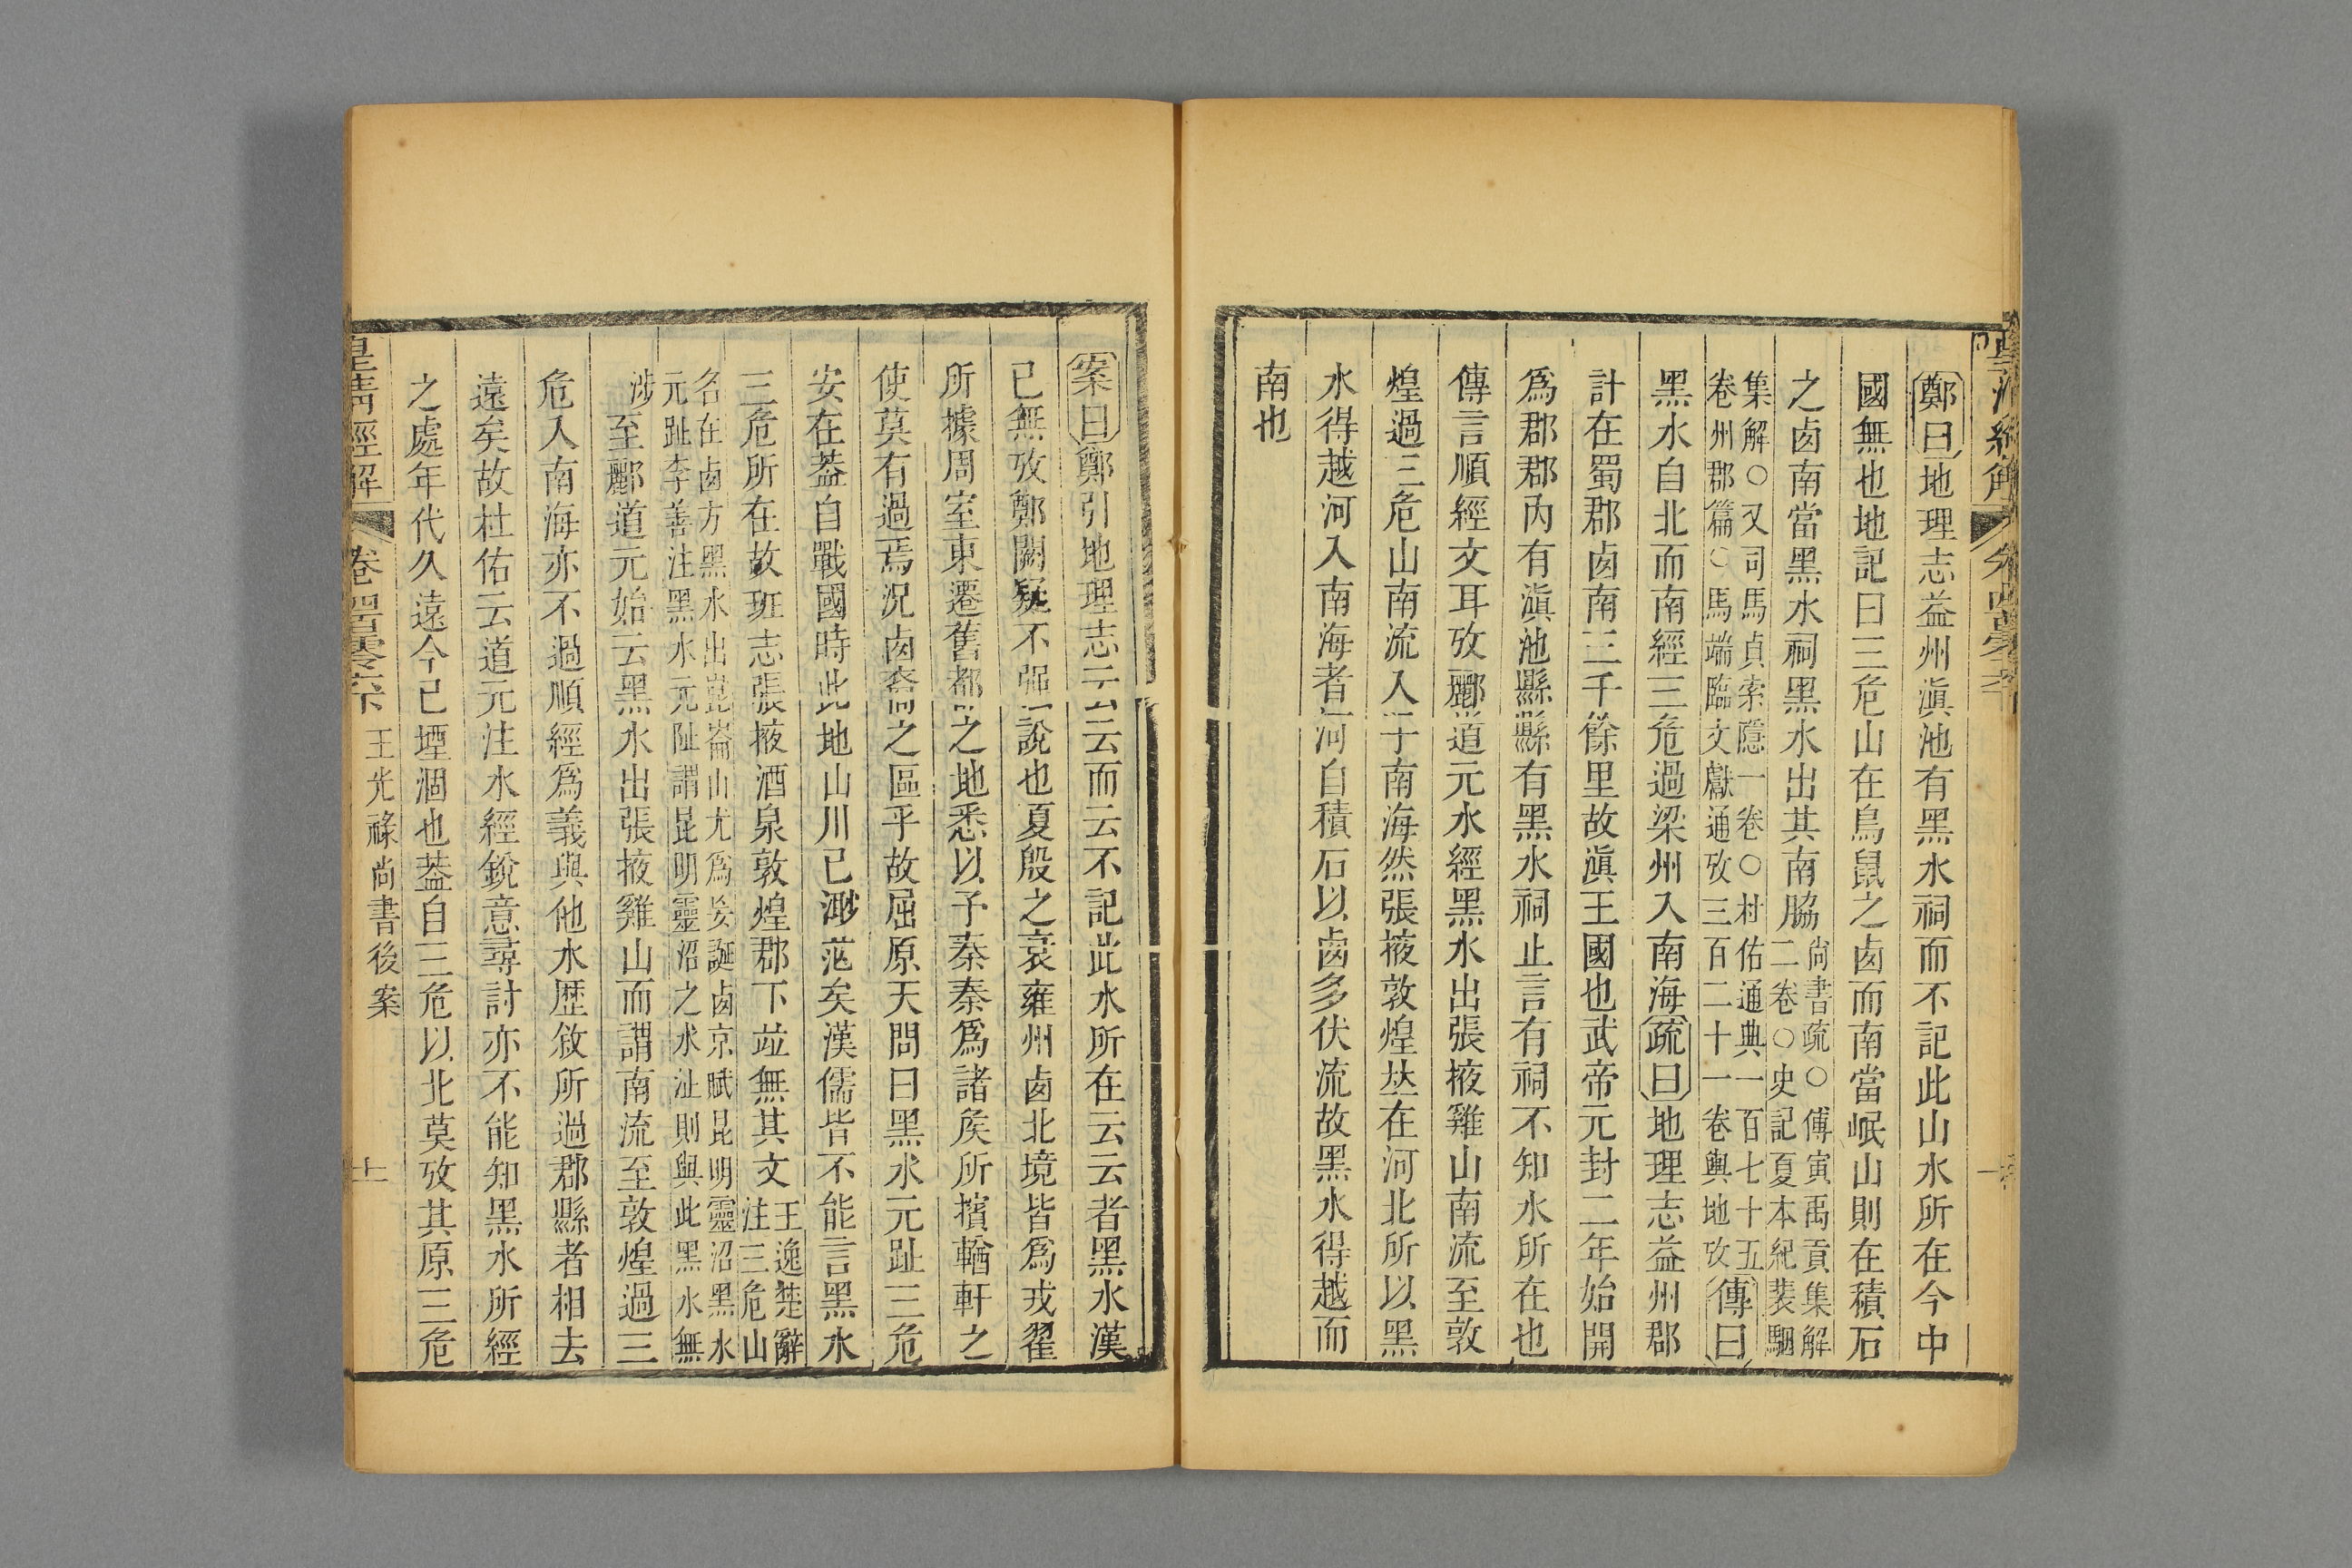 鄭曰地理志益州滇池有黑水祠而不記此山水所在今中
國無也地記曰三危山在鳥鼠之卤而南當岷山則在積石
之卤南當黑水祠黑水出其南脇尚書疏○傅寅禹貢集解二卷○史記夏本紀裴駰
集解○又司馬貞索隱一卷○杜佑通典一百七十五卷州郡篇○馬端臨文獻通攷三百二十一卷輿地攷傳曰
黑水自北而南經三危過梁州入南海疏曰地理志益州郡
計在蜀郡卤南三千餘里故滇王國也武帝元封二年始開
爲郡郡內有滇池縣縣有黑水祠止言有祠不知水所在也
傳言順經文耳攷酈道元水經黑水出張掖雞山南流至敦
煌過三危山南流入于南海然張掖敦煌竝在河北所以黑
水得越河入南海者河自積石以卤多伏流故黑水得越而
南也
案曰鄭引地理志云云而云不記此水所在云云者黑水漢
已無攷鄭闕疑不强說也夏殷之衰雍州卤北境皆爲戎翟
所據周室東遷舊都之地悉以予秦秦爲諸矦所擯輶軒之
使莫有過焉況卤裔之區乎故屈原天問曰黑水元趾三危
安在葢自戰國時此地山川已渺茫矣漢儒皆不能言黑水
三危所在故班志張掖酒泉敦煌郡下竝無其文王逸楚辭注三危山
名在卤方黑水出崑崙山尤爲妄誕卤京賦昆明靈沼黑水元趾李善注黑水元阯謂昆明靈沼之水沚則與此黑水無
涉至酈道元始云黑水出張掖雞山而謂南流至敦煌過三
危入南海亦不過順經爲義與他水歷敘所過郡縣者相去
遠矣故杜佑云道元注水經銳意尋討亦不能知黑水所經
之處年代久遠今已堙涸也葢自三危以北莫攷其原三危
皇淸經解 卷四百零六下 王光祿尚書後案 十一